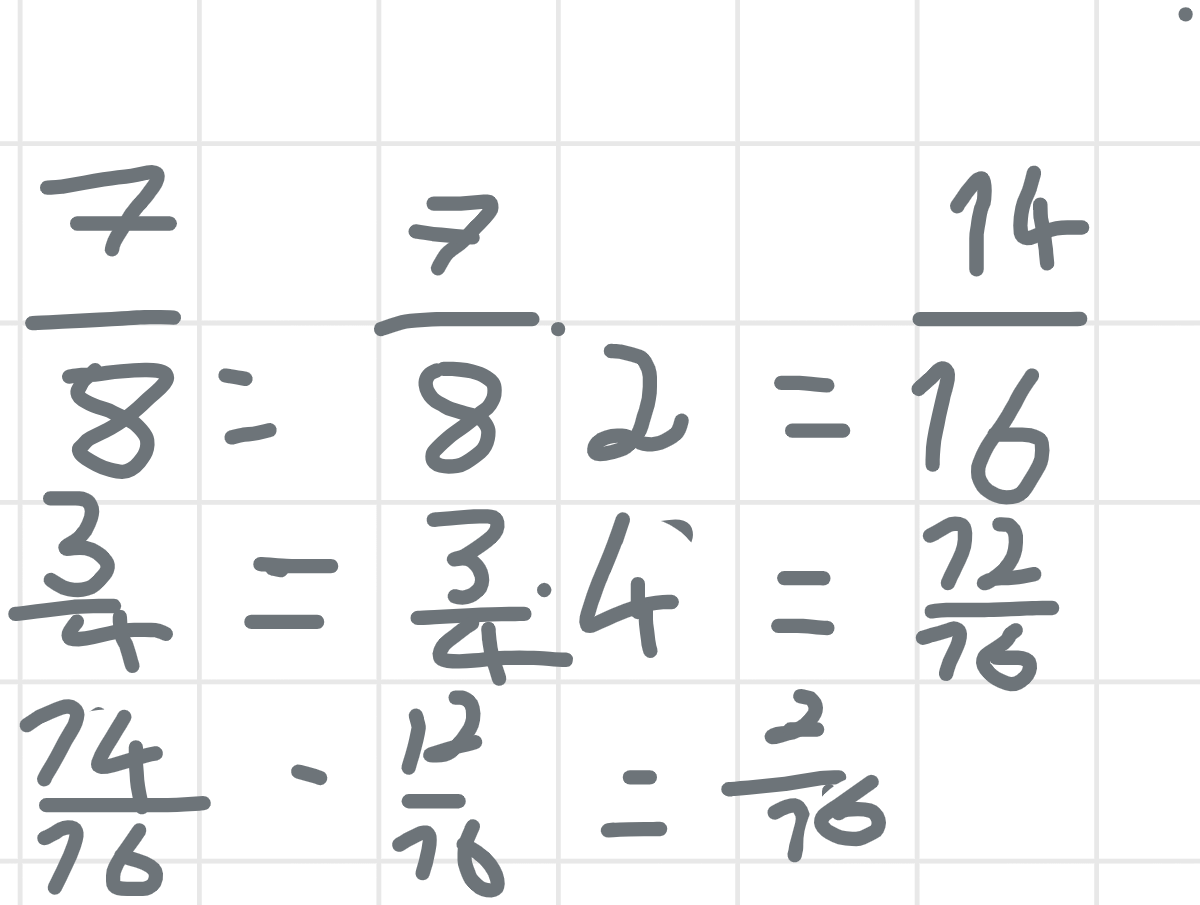 7/8 = 7/8 · 2 = 14/16
3/4 = 3/4 · 4 = 12/16
14/16 - 12/16 = 2/16